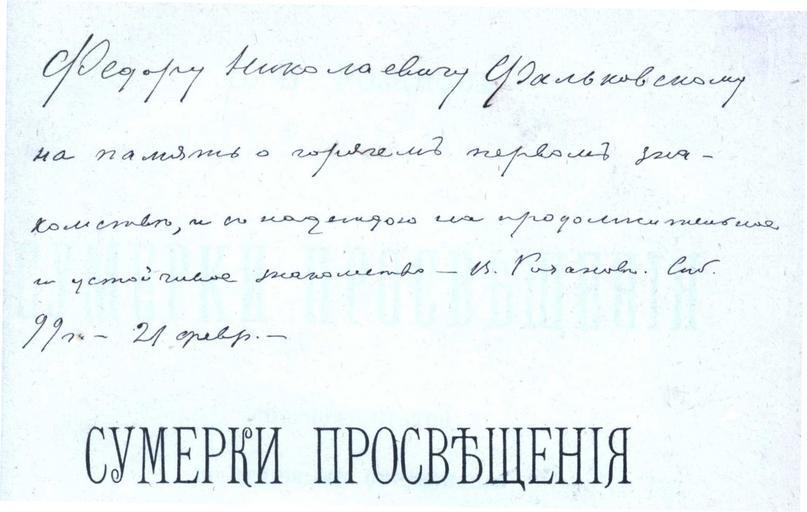 Федору Николаевичу Фальковскому
на память о горячемъ первомъ зна-
комствѣ, и съ надеждою на продолжительное
и устойчивое знакомство — В. Розановъ. Спб.
99 г. — 21 февр. —
СУМЕРКИ ПРОСВѢЩЕНІЯ